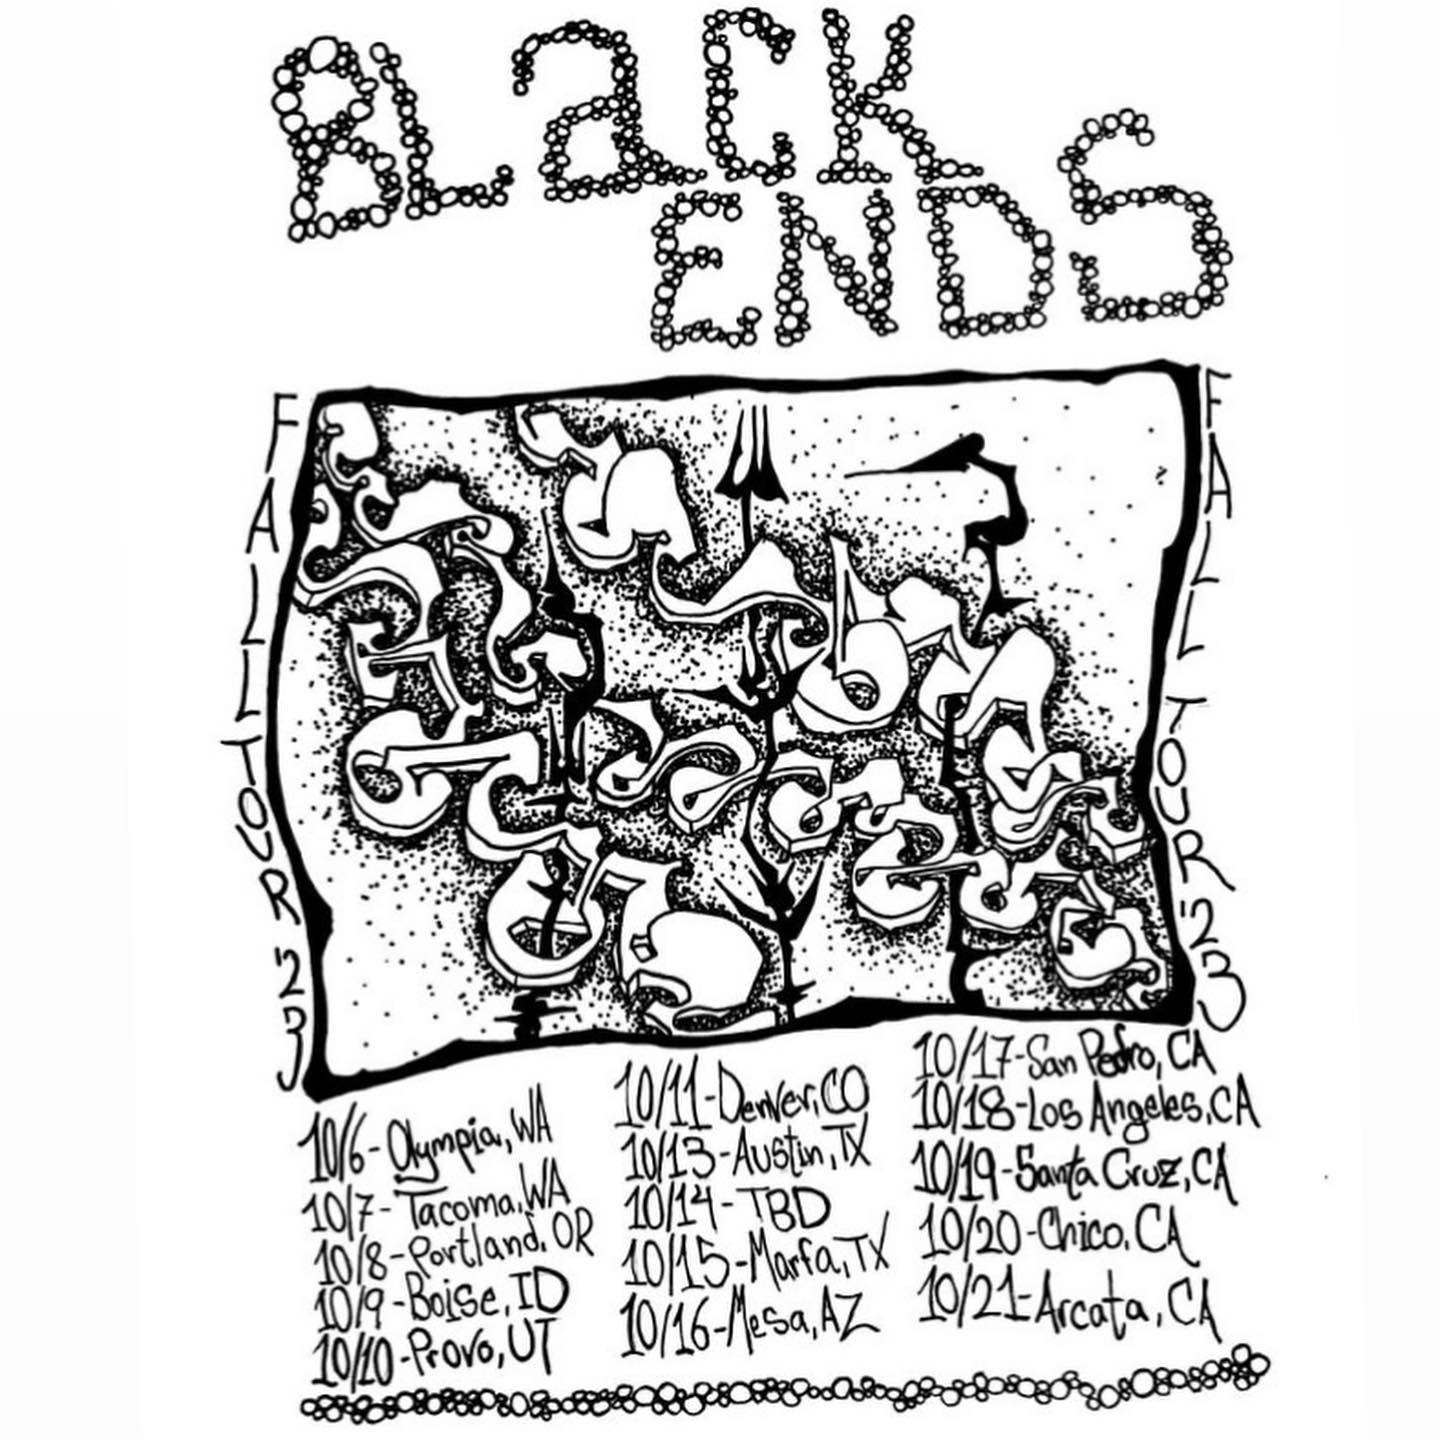 BLaCK
ENDS
FALL TOUR '23
FALL TOUR '23
10/6-Olympia, WA
10/7-Tacoma, WA
10/8-Portland, OR
10/9-Boise, ID
10/10-Provo, UT
10/11-Denver, CO
10/13-Austin, TX
10/14-TBD
10/15-Marfa, TX
10/16-Mesa, AZ
10/17-San Pedro, CA
10/18-Los Angeles, CA
10/19-Santa Cruz, CA
10/20-Chico, CA
10/21-Arcata, CA